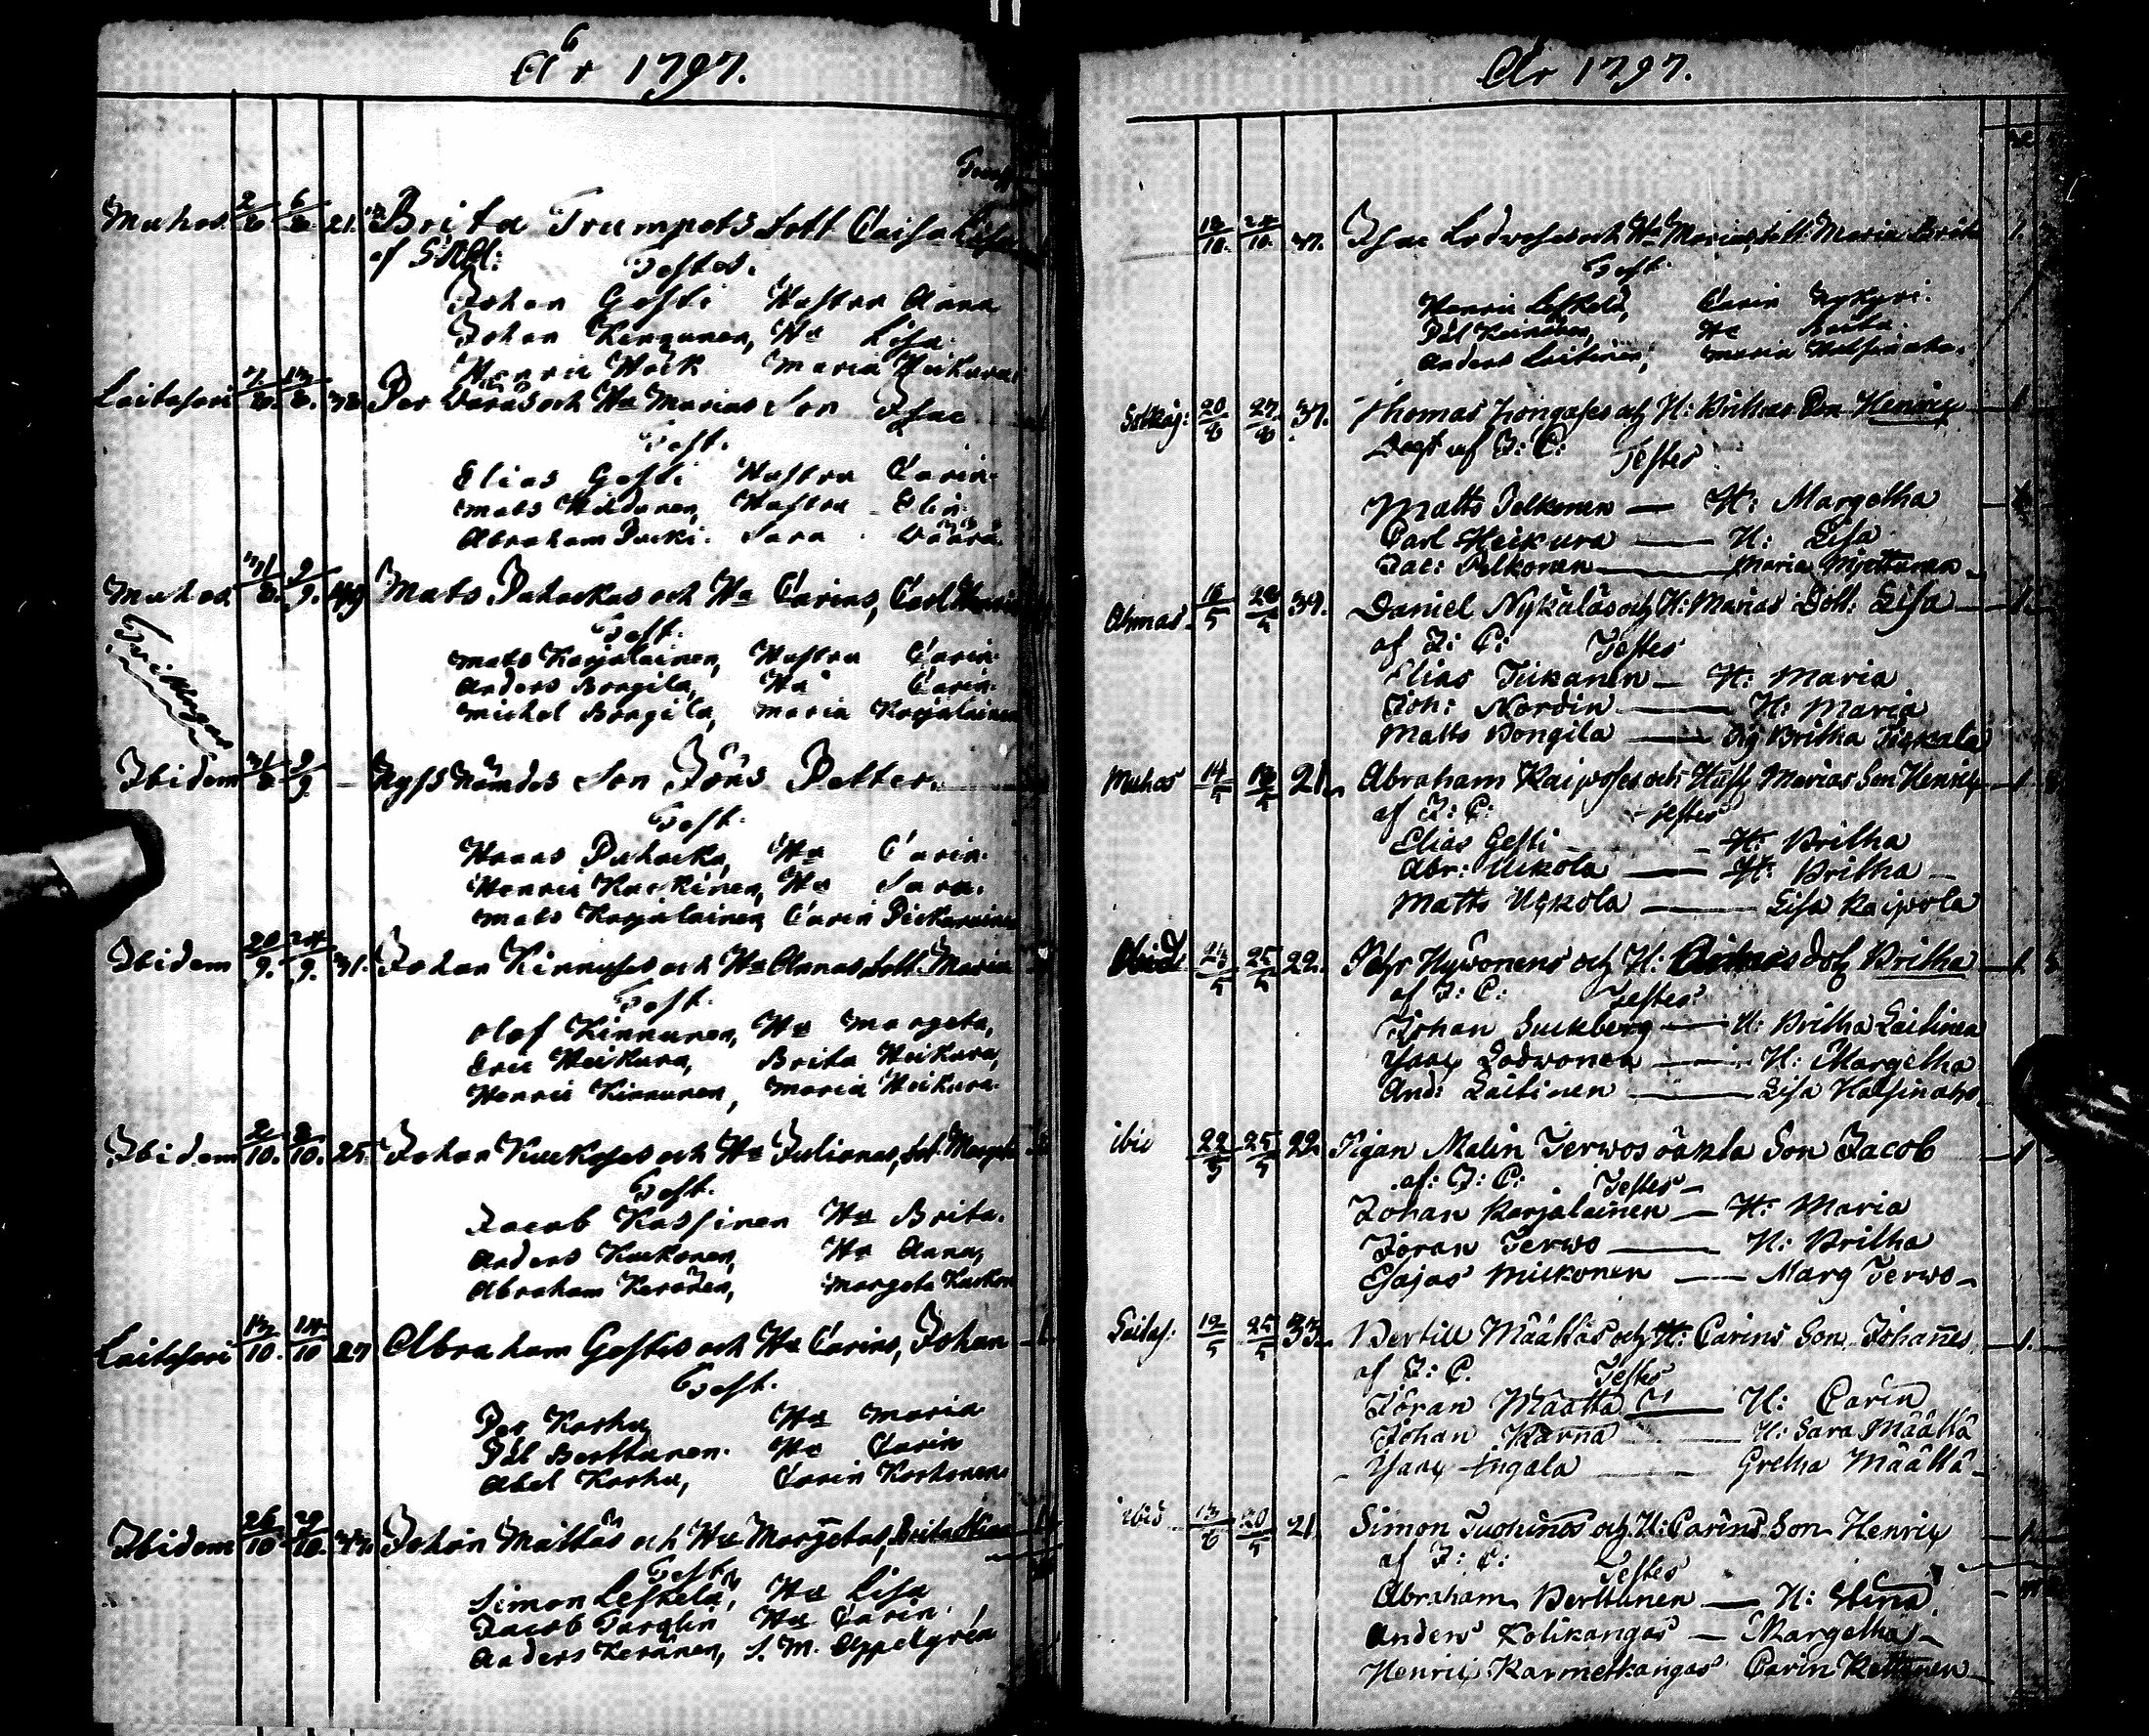 År 1797.
Muhos 2/8 6/8 21. Brita Trumpets dott Caisa Lisa
af S:
Testes.
Johan Gesti Hustru Anna
Johan Kengunen, Hu Lisa.
Henric Höck Maria Heikura
Laitasari 38. Per Määräs och Hu Marias Son Isac
Test.
Elias Gesti Hustru Carin.
Mats Heidanen, Hustru Elin.
Abraham Packi. Sara Väärä.
Muhos 31/8. 9/9. Mats Puhackas och Hu Carins, Carl Henric
Test.
Mats Karjalainen, Hustru Carin.
Anders Bongila, Hu Carin.
Michel Bongila, Maria Karjalainen
Ibidem 31/8 9/9. — Son Jöns Petter.
Test.
Hans Puhacka, Hu Carin.
Henric Kackinen, Hu Sara.
Mats Karjalainen, Carin
Ibidem 20/9. 24/9. 31. Johan Kinnuses och Hu Annas dott. Maria
Test.
Olof Kinnunen, Hu Margeta,
Eric Heikura, Brita Heikura,
Henric Kinnunen, Maria Heikura.
Ibidem 2/10. 8/10. 25. Johan Kuckoses och Hu Julianas, dot. Margeta
Test.
Jacob Kassinen Hu Brita.
Anders Kuckonen, Hu Anna,
Abraham Keränen, Margeta Kuckon
Laitasari 13/10. 14/10 27 Abraham Gestis och Hu Carins, Johan
Test.
Per Korhu, Hu Maria
Pål Berttunen. Hu Carin
Abel Korhu, Carin Korhonen
Ibidem 26/10 29/10. Johan Mattas och Hu Margetas, Brita Stina
Test.
Simon Leskelä, Hu Lisa
Jacob Hu Carin.
Anders Keränen, S. M. Appelgrén
År 1797.
18/10. 24/10. 37. Isac Lodwoses och Hu Marias, dott: Maria Brita 1.
Test.
Henric Leskelä, Carin Nykyri.
Pål Keinänen, Hu Brita.
Anders Laitinen, Maria Halsinaho.
Sotkaj: 20/8 27/8 37. Thomas Pongases och H: Brithas Son Henric 1
Dopt af J: C: Testes
Matts Pelkonen — H: Margetha
Carl Heikura — H: Lisa
Jac: Pelkonen — Maria Myettunen
Ahmas. 18/5 28/5 39. Daniel Nykäläs och H: Marias Dott: Lisa 1.
af J: C: Testes
Elias Tuikanen — H: Maria
Joh: Nordin — H: Maria
Matts Bongila — Pig Britha Tiskala
Muhos 14/5 18/5 21. Abraham Kaiposes och Hust Marias Son Henric 1
af J: C: Testes
Elias Gesti — H: Britha
Abr: Uckola — H: Britha
Matts Uckola — Lisa Kaipola
24/5 25/5 22. Petr Hyvönens och H: dotz Britha 1.
af J: C: Testes
Johan Suckberg — H: Britha Laitinen
Isac Lodwonen — H: Margetha
And: Laitinen — Lisa Halsinaho
ibid 22/5 25/5 22. Pigan Malin Terwos oäkta Son Jacob 1
af: J: C: Testes
Johan Karjalainen — H: Maria
Jöran Terwo — H: Britha
Esajas Mickonen — Marg Terwo
Laitas: 19/5 25/5 33. Bertill Määttäs och H: Carins Son Johannes 1.
af J: C. Testes
Jöran Määttä — H: Carin
Johan Kärnä — H: Sara Määttä
Isac Ingala — Gretha Määttä
ibid 13/8 20/5 21. Simon Tuohinos och H: Carins Son Henric 1
af J: C: Testes
Abraham Berttunen — H: Stina
Anders Kolikangas — Margetha
Henric Karmetkangas Carin Kettunen